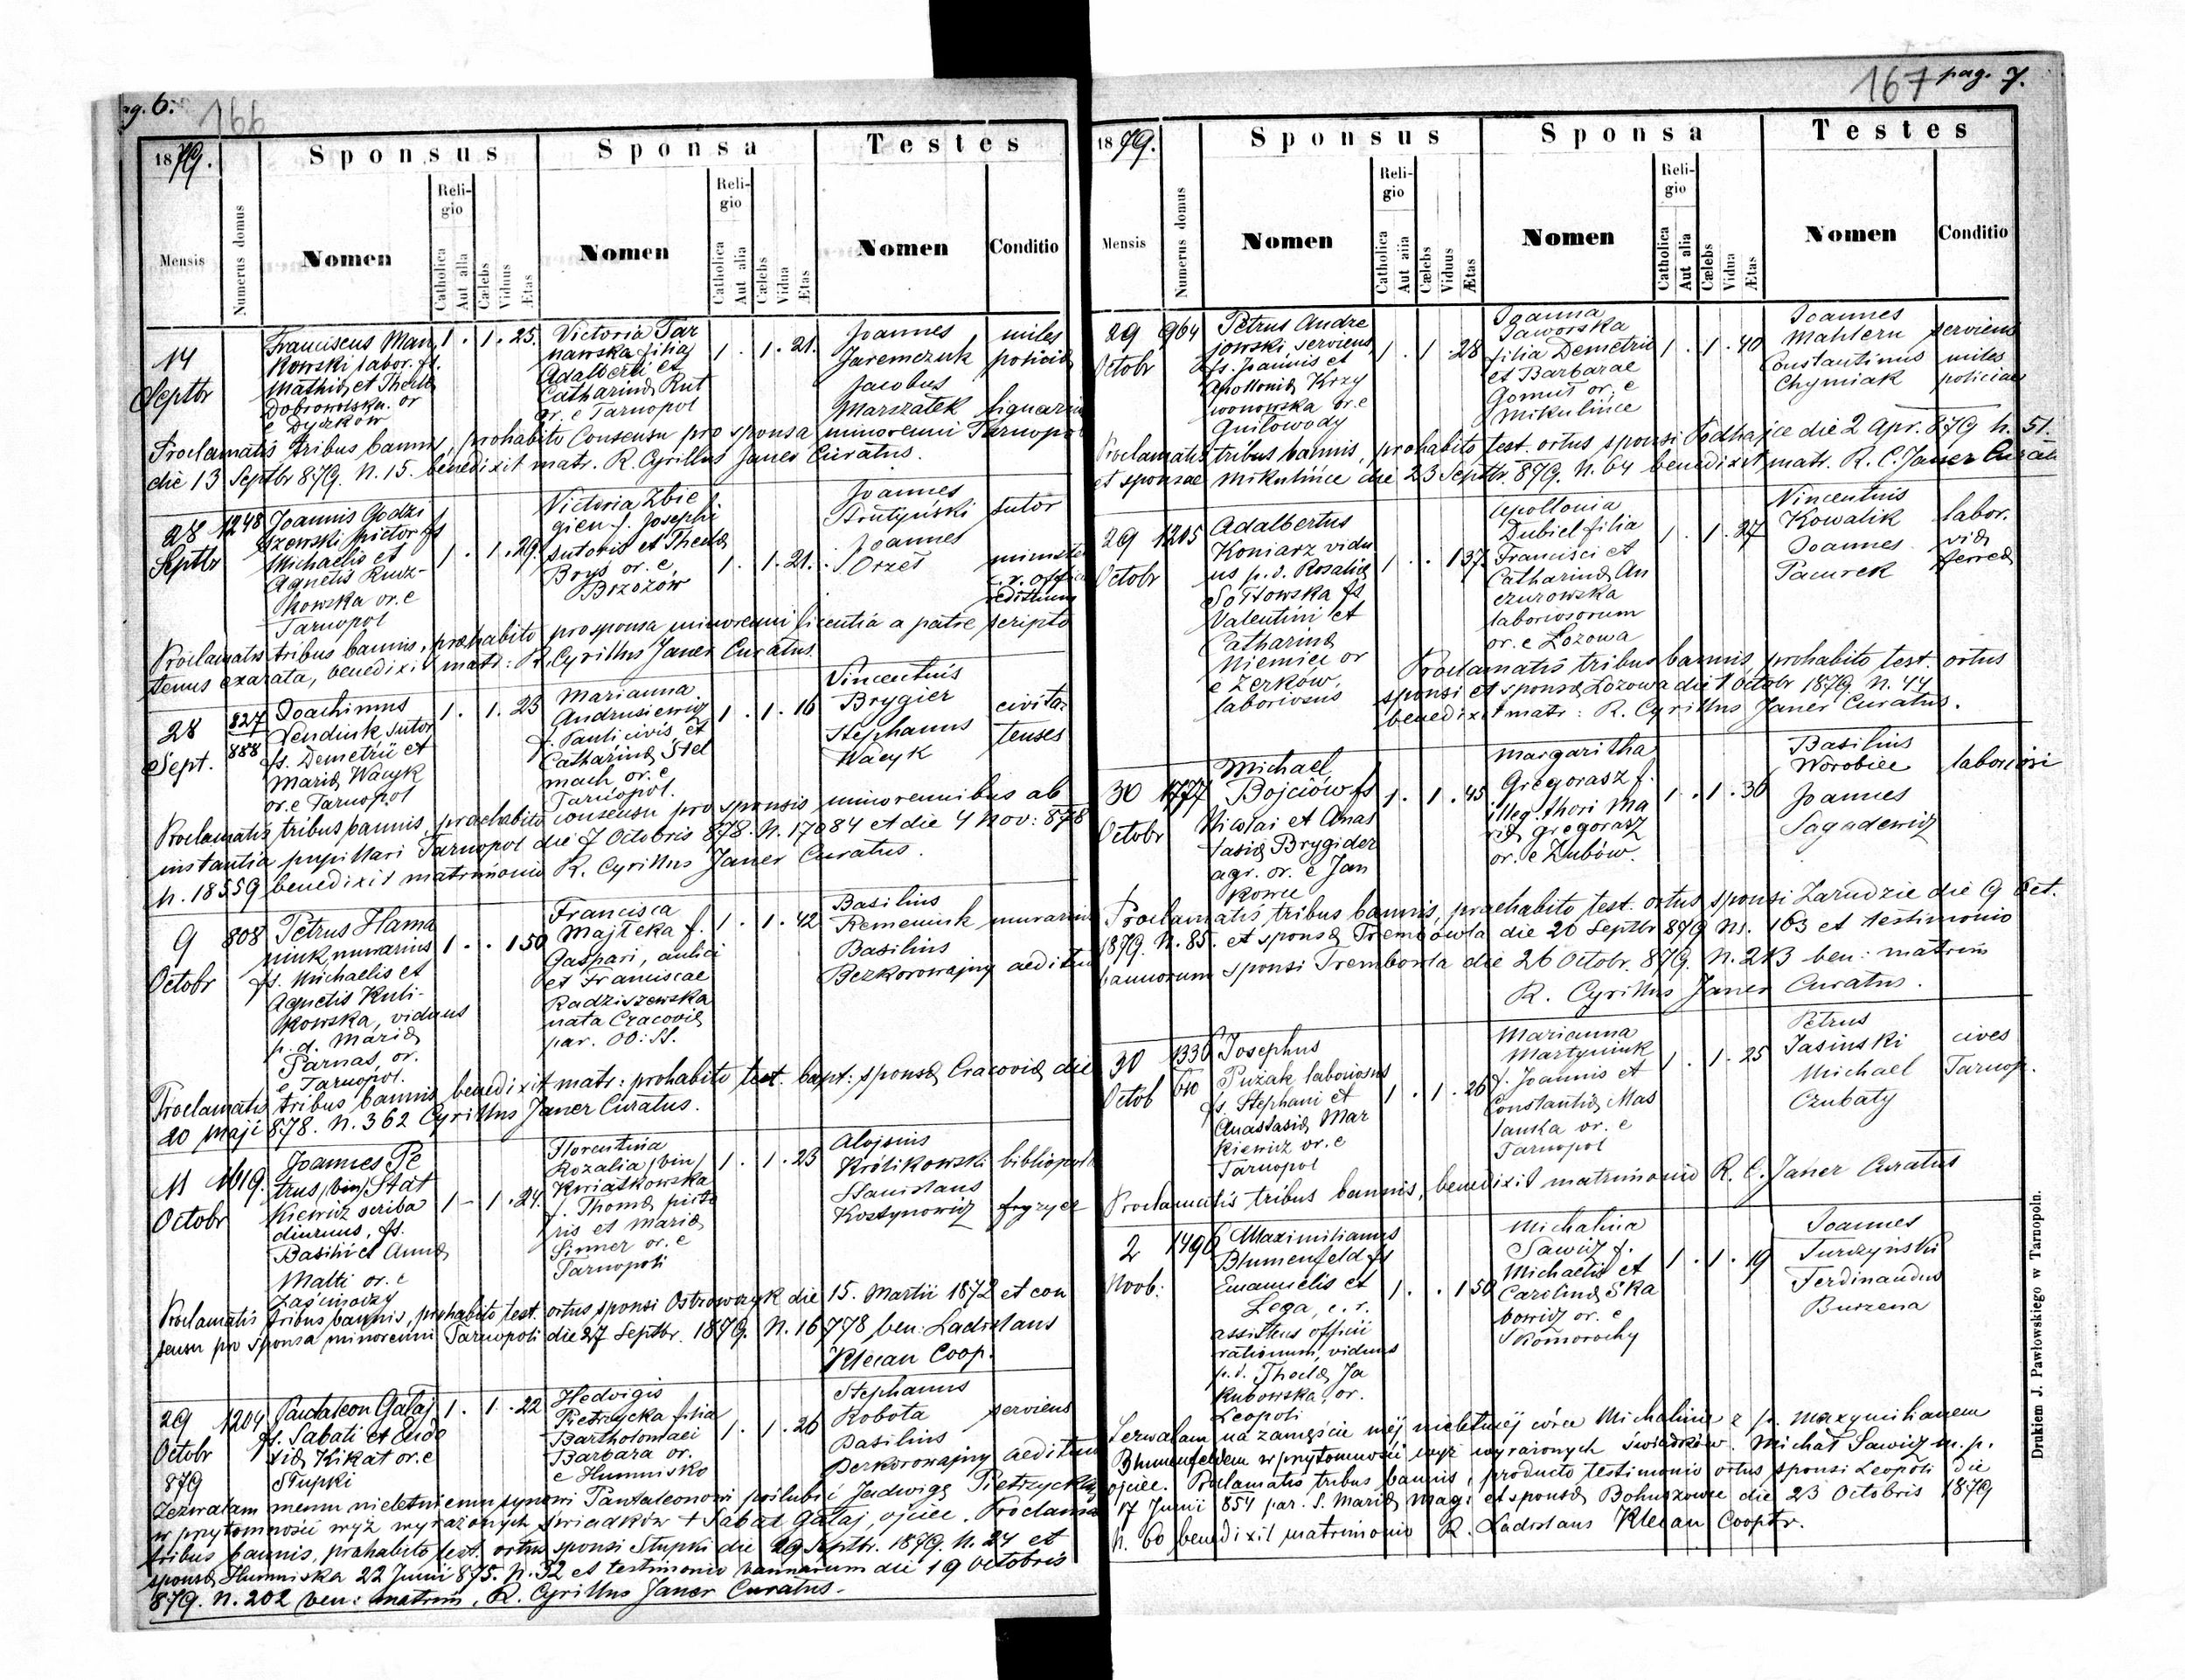 pag. 6.
166
1879.
Sponsus
Sponsa
Testes
Mensis
Numerus domus
Nomen
Religio
Catholica
Aut alia
Cælebs
Viduus
Ætas
Nomen
Religio
Catholica
Aut alia
Cælebs
Vidua
Ætas
Nomen
Conditio
14
Septbr
Franciscus Man
kowski labor. fs.
Mathiæ et Theclæ
Dobrowolska. or
e Dyczków
1 . 1 . 25.
Victoria Tar
nawska filia
Adalberti et
Catharinæ Rut
or. e Tarnopol
1 . 1 . 21.
Joannes
Jaremczuk
miles
policiæ
Jacobus
Marszałek
lignarius
Proclamatis tribus bannis, prohabito Consensu pro sponsa minorenni Tarnopol
die 13 Septbr 879. N. 15. benedixit matr. R. Cyrillus Janer Curatus.
28
Septbr
1248
Joannis Godzi
szewski pictor fs
Michaelis et
Agnetis Rudz-
kowska or. e
Tarnopol
1 . 1 . 29.
Victoria Zbie
gien f. Josephi
sutoris et Theclæ
Bryś or. e
Brzozów
1 . 1 . 21.
Joannes
Strutyński
sutor
Joannes
Orzeł
c. r. offic
Proclamatis tribus bannis, præhabito pro sponsa minorenni licentia a patre scripto
tenus exarata, benedixit matr: R. Cyrillus Janer Curatus.
28
Sept.
827
888
Joachimus
Dendiuk sutor
fs. Demetrii et
Mariæ Wacyk
or. e Tarnopol
1 . 1 . 23
Marianna
Andrusiewicz
f. Pauli civis et
Catharinæ Stel
mach or. e
Tarnopol.
1 . 1 . 16
Vincentius
Brygier
Stephanus
Wacyk
civita
tenses
Proclamatis tribus bannis, praehabito consensu pro sponsis minorennibus ab
instantia pupillari Tarnopol die 7 Octobris 878. N. 17084 et die 4 Nov: 878
N. 18559 benedixit matrimonio R. Cyrillus Janer Curatus.
9
Octobr
808
Petrus Hama
niuk murarius
fs. Michaelis et
Agnetis Kuli-
kowska, viduus
p. d. Mariæ
Parnas, or.
e Tarnopol.
1 . . 1 50
Francisca
Majteka f.
Gaspari, aulici
et Franciscae
Radziszewska
nata Cracoviæ
par. OO: SS.
1 . 1 . 42
Basilius
Remeniuk
murarius
Basilius
Bezkorowajny
aedituus
Proclamatis tribus bannis benedixit matr: prohabito test. bapt: sponsæ Cracoviæ die
20 maji 878. N. 362 Cyrillus Janer Curatus.
11
Octobr
1619.
Joannes Pe
trus (bin) Stat
kiewicz scriba
diurnus, fs.
Basilii et Annæ
Malti or. e
Zaścinoczy
1 – 1 . 24.
Florentina
Rozalia (bin)
Kwiatkowska
f. Thomæ pisto
ris et Mariæ
Sinner or. e
Tarnopoli
1 . 1 . 23
Aloysius
Królikowski
bibliopola
Stanislaus
Kostynowicz
fryzyer
Proclamatis tribus bannis, prohabito test. ortus sponsi Ostrowczyk die 15. Martii 1872 et con
sensu pro sponsa minorenni Tarnopoli die 27 Septbr. 1879. N. 16778 ben: Ladislaus
Klecan Coop.
29
Octobr
879
1204
Pantaleon Gałaj
fs. Sabati et Eudo
xiæ Kikat or. e
Stupki
1 . 1 . 22
Hedvigis
Pietrzycka filia
Bartholomaei
Barbara or.
e Humnisko
1 . 1 . 26
Stephanus
Robota
serviens
Basilius
Berkorowajny
aedituus
Zezwalam memu nieletniemu synowi Pantaleonowi poślubić Jadwigę Pietrzycką
w przytomności wyż wyrażonych świadków + Sabat Gałaj, ojciec. Proclama
tribus bannis, prahabito test. ortus sponsi Stupki die 29 Septbr. 1879. N. 24 et
sponsæ Humniska 22 Junii 875. N. 32 et testimonio bannorum die 19 Octobris
879. N. 202 ben: matrim. R. Cyrillus Janer Curatus.
167 pag. 7.
1879.
Sponsus
Sponsa
Testes
Mensis
Numerus domus
Nomen
Religio
Catholica
Aut alia
Cælebs
Viduus
Ætas
Nomen
Religio
Catholica
Aut alia
Cælebs
Vidua
Ætas
Nomen
Conditio
29
Octobr
964
Petrus Andre
jowski, serviens,
fs. Joannis et
Apolloniæ Krzy
wonowska or. e
Gniłowody
1 . 1 . 28
Joanna
Jaworska
filia Demetrii
et Barbarae
Gomut or. e
Mikulińce
1 . 1 . 40
Joannes
Mahlern
serviens
Constantinus
Chymiak
miles
policiae
Proclamatis tribus bannis, prohabito test. ortus sponsi Podhajce die 2 Apr. 879 N. 51.
et sponsae Mikulińce die 23 Septbr. 879. N. 64 benedixit matr. R. C. Janer Curatus
29
Octobr
1205
Adalbertus
Koniarz vidu
us p. d. Rosaliæ
Sołtowska fs
Valentini et
Catharinæ
Niemiec or
e Zerków,
laboriosus
1 . . 1 37
Apollonia
Dubiel filia
Francisci et
Catharinæ An
czurowska
laboriosorum
or. e Łozowa
1 . 1 . 27
Vincentius
Kowalik
labor.
Joannes
Pacurek
viæ
ferreæ
Proclamatis tribus bannis, prohabito test. ortus
sponsi et sponsæ Łozowa die 1 Octobr 1879. N. 44
benedixit matr: R. Cyrillus Janer Curatus.
30
Octobr
1777
Michael
Bojciów fs
Nicolai et Anas
tasiæ Brygider
agr. or. e Jan
kowce
1 . 1 . 45
Margaritha
Gregorasz f.
illeg. thori Ma
riæ Gregorasz
or. e Zubów.
1 . 1 . 36
Basilius
Worobiec
laboriosi
Joannes
Sagadewicz
Proclamatis tribus bannis, praehabito test. ortus sponsi Zarudzie die 9 Oct.
1879. N. 85. et sponsæ Trembowla die 20 Septbr 879 Nr. 163 et testimonio
bannorum sponsi Trembowla die 26 Octobr. 879. N. 213 ben: matrim
R. Cyrillus Janer Curatus.
30
Octob
1336
610
Josephus
Puzak laboriosus
fs. Stephani et
Anastasiæ Mar
kiewicz or. e
Tarnopol
1 . 1 . 26
Marianna
Martyniuk
f. Joannis et
Constantiæ Mas
lanka or. e
Tarnopol
1 . 1 . 25
Petrus
Jasinski
cives
Michael
Czubaty
Tarnop.
Proclamatis tribus bannis, benedixit matrimonio R. C. Janer Curatus
2
Novb:
1496
Maximilianus
Blumenfeld fs
Emanuelis et
Lega, c. r.
assistens officii
rationum, viduus
p. d. Theclæ Ja
kubowska, or.
Leopoli
1 . . 1 50
Michalina
Sawicz f.
Michaelis et
Carolinæ Ska
bowicz or. e
Skomorochy
1 . 1 . 19
Joannes
Turczyński
Ferdinandus
Burzena
Zezwalam na zamęście mej nieletniej córce Michalinie z p. Maxymilianem
Blumenfeldem w przytomności wyż wyrażonych świadków. Michał Sawicz m. p.
ojciec. Proclamatis tribus bannis, producto testimonio ortus sponsi Leopoli die
17 Junii 854 par. S. Mariæ Mag: et sponsæ Bohuszowce die 23 Octobris 1879
N. 60 benedixit matrimonio R. Ladislaus Klecan Cooptr.
Drukiem J. Pawłowskiego w Tarnopolu.